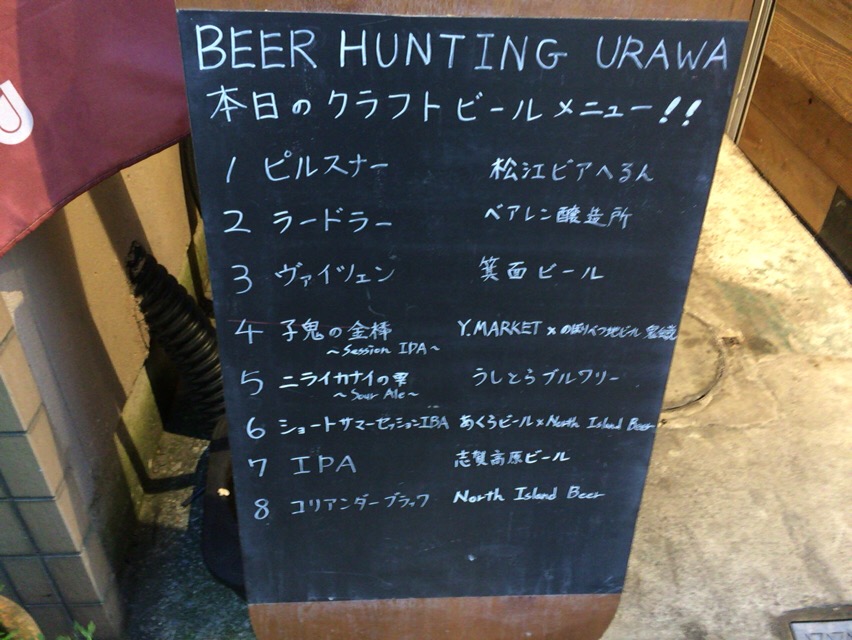 BEER HUNTING URAWA
本日のクラフトビールメニュー!!
1 ピルスナー 松江ビアへるん
2 ラードラー ベアレン醸造所
3 ヴァイツェン 箕面ビール
4 子鬼の金棒 Y.MARKET × のぼりべつ地ビール 鬼伝説
~Session IPA~
5 ニライカナイの雫 うしとらブルワリー
~Sour Ale~
6 ショートサマーセッションIBA あくらビール×North Island Beer
7 IPA 志賀高原ビール
8 コリアンダーブラック North Island Beer